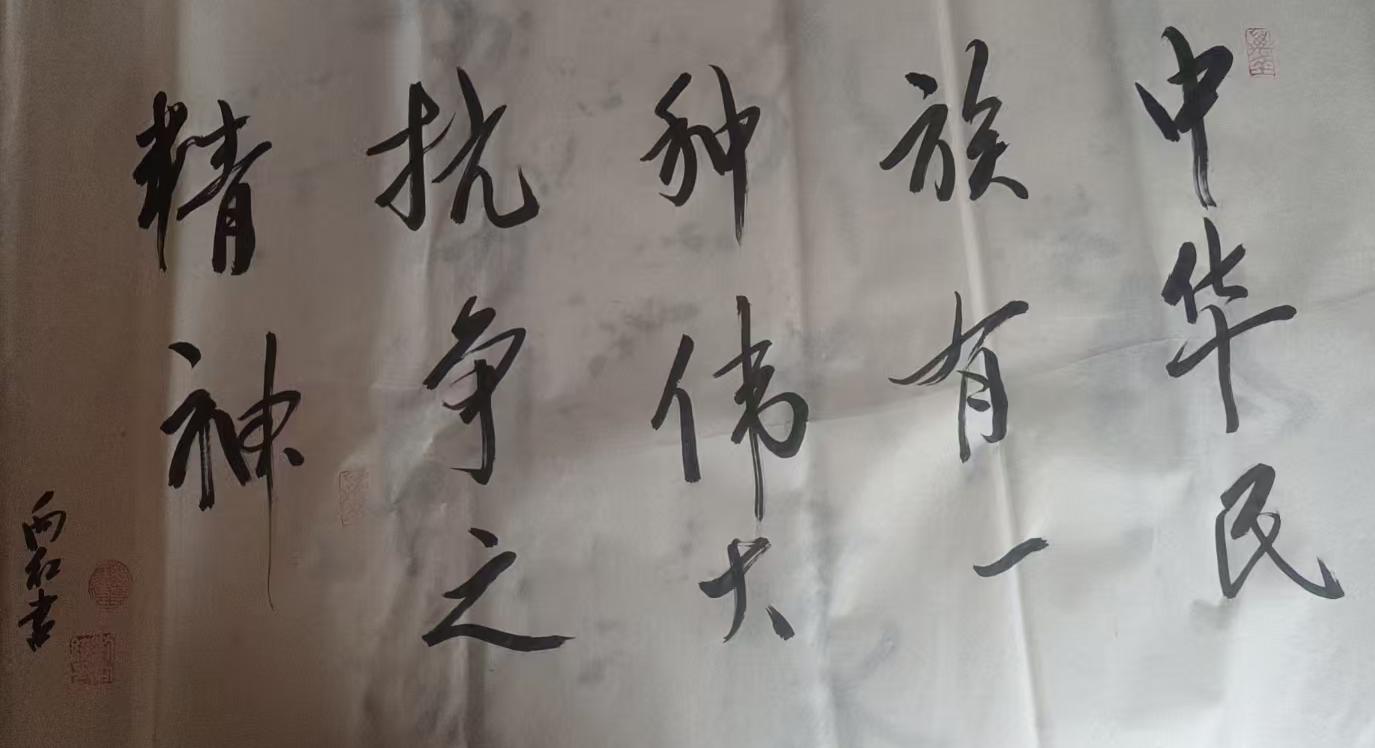 中华民
族有一
种伟大
抗争之
精神